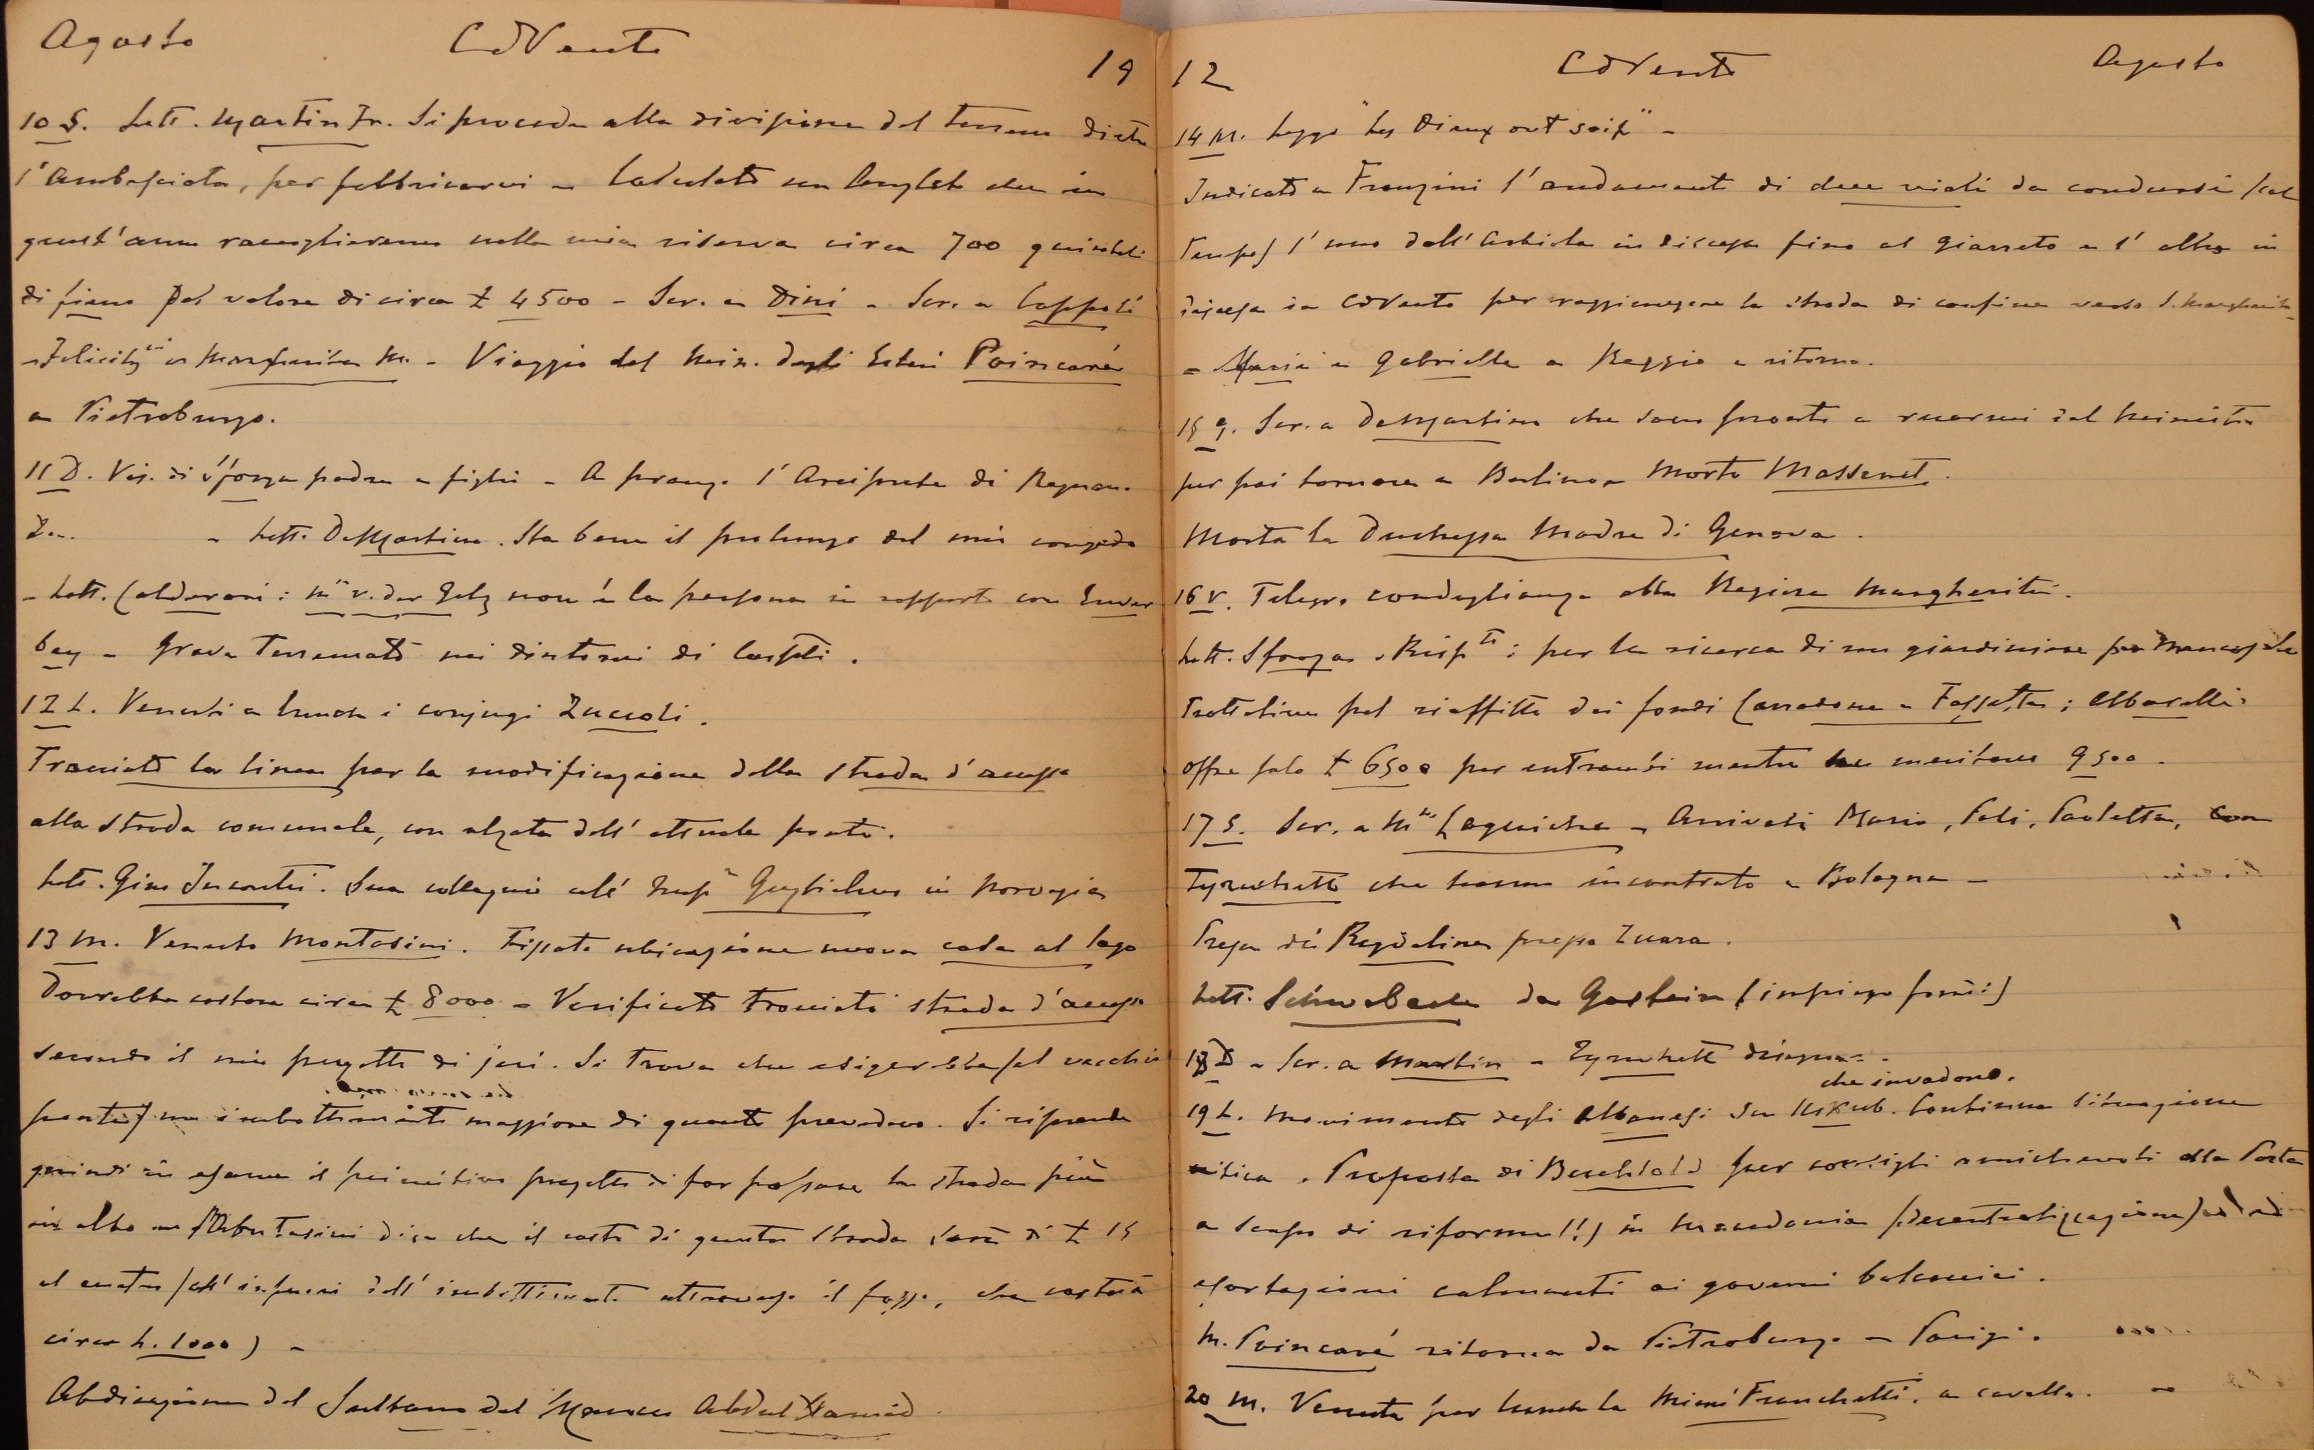 Agosto CdVento 19
10 S. Lett. Martin Fr. Si proceda alla divisione del terreno dietro
l'Ambasciata, per fabbricarvi - Calcolato con che in
quest'anno raccoglieremo nella mia riserva circa 700 quintali
di fieno pel valore di circa £ 4500 - Scr. a Dini - Scr. a Coppoli
- Felicit.ni a Margherita M. - Viaggio del Min. degli Esteri Poincaré
a Pietroburgo.
11 D. Vis. di Sforza padre e figlio - A pranzo l'Arciprete di
- Lett. DeMartino. Sta bene il prolungo del mio congedo
- Lett. Calderari: M.me v. der Golz non è la persona in rapporto con Enver
bey - Grave terremoto nei dintorni di Cospoli.
12 L. Venuti a lunch i conjugi Zuccoli.
Tracciato la linea per la modificazione della strada d'accesso
alla strada comunale, con alzata dell'attuale ponte.
Lett. Gino Incontri. Suo colloquio coll' Imp.re Guglielmo in Norvegia
13 M. Venuto Montasini. Fissata ubicazione nuova casa al lago
Dovrebbe costare circa £ 8000 - Verificato tracciato strada d'accesso
secondo il mio progetto di jeri. Si trova che esigerebbe (al vecchio
ponte) un imbottimento maggiore di quanto prevedevo. Si riprende
quindi in esame il primitivo progetto di far passare la strada più
in alto e Montasini dice che il costo di questa strada sarà di £ 15
al metro (all'infuori dell'imbottimento attraverso il fosso, che costerà
circa L. 1000) -
Abdicazione del Sultano del Marocco Abdul Hamid.
12 CdVento Agosto
14 M. Leggo "Les Dieux ont soif" -
Indicato a Franzini l'andamento di due viali da condursi (col
tempo) l'uno dall' in discesa fino al giarreto e l'altro in
discesa in CdVento per raggiungere la strada di confine verso S. Margherita
- Maria e Gabriella a Reggio e ritorno.
15 g. Scr. a DeMartino che sono pronto a recarmi dal Ministro
per poi tornare a Berlino - Morto Massenet.
Morta la Duchessa Madre di Genova.
16 V. Telegr. condoglianze alla Regina Margherita.
Lett. Sforza. Risp.to: per la ricerca di un giardiniere per
Trattative pel riaffitto dei fondi Carradona e Fossetta; Albarelli
offre solo £ 6500 per entrambi mentre ne meritano 9500.
17 S. Scr. a M.me Laguiche - Arrivati Mario, Poli, Paoletta, con
Tyrwhitt che hanno incontrato a Bologna -
Presa di Regdaline presso Zuara.
Lett. Schwabach da Gastein (impiego fondi)
18 D - Scr. a Martin - Tyrwhitt disegna.
che invadono.
19 L. Movimento degli Albanesi su Uskub. Continua situazione
critica. Proposta di Berchtold per consigli amichevoli alla Porta
a scopo di riforme (!!) in Macedonia (decentralizzazione) ed ad
esortazioni calmanti ai governi balcanici.
M. Poincaré ritorna da Pietroburgo a Parigi.
20 M. Venuta per lunch la Mimì Franchetti, a cavallo.